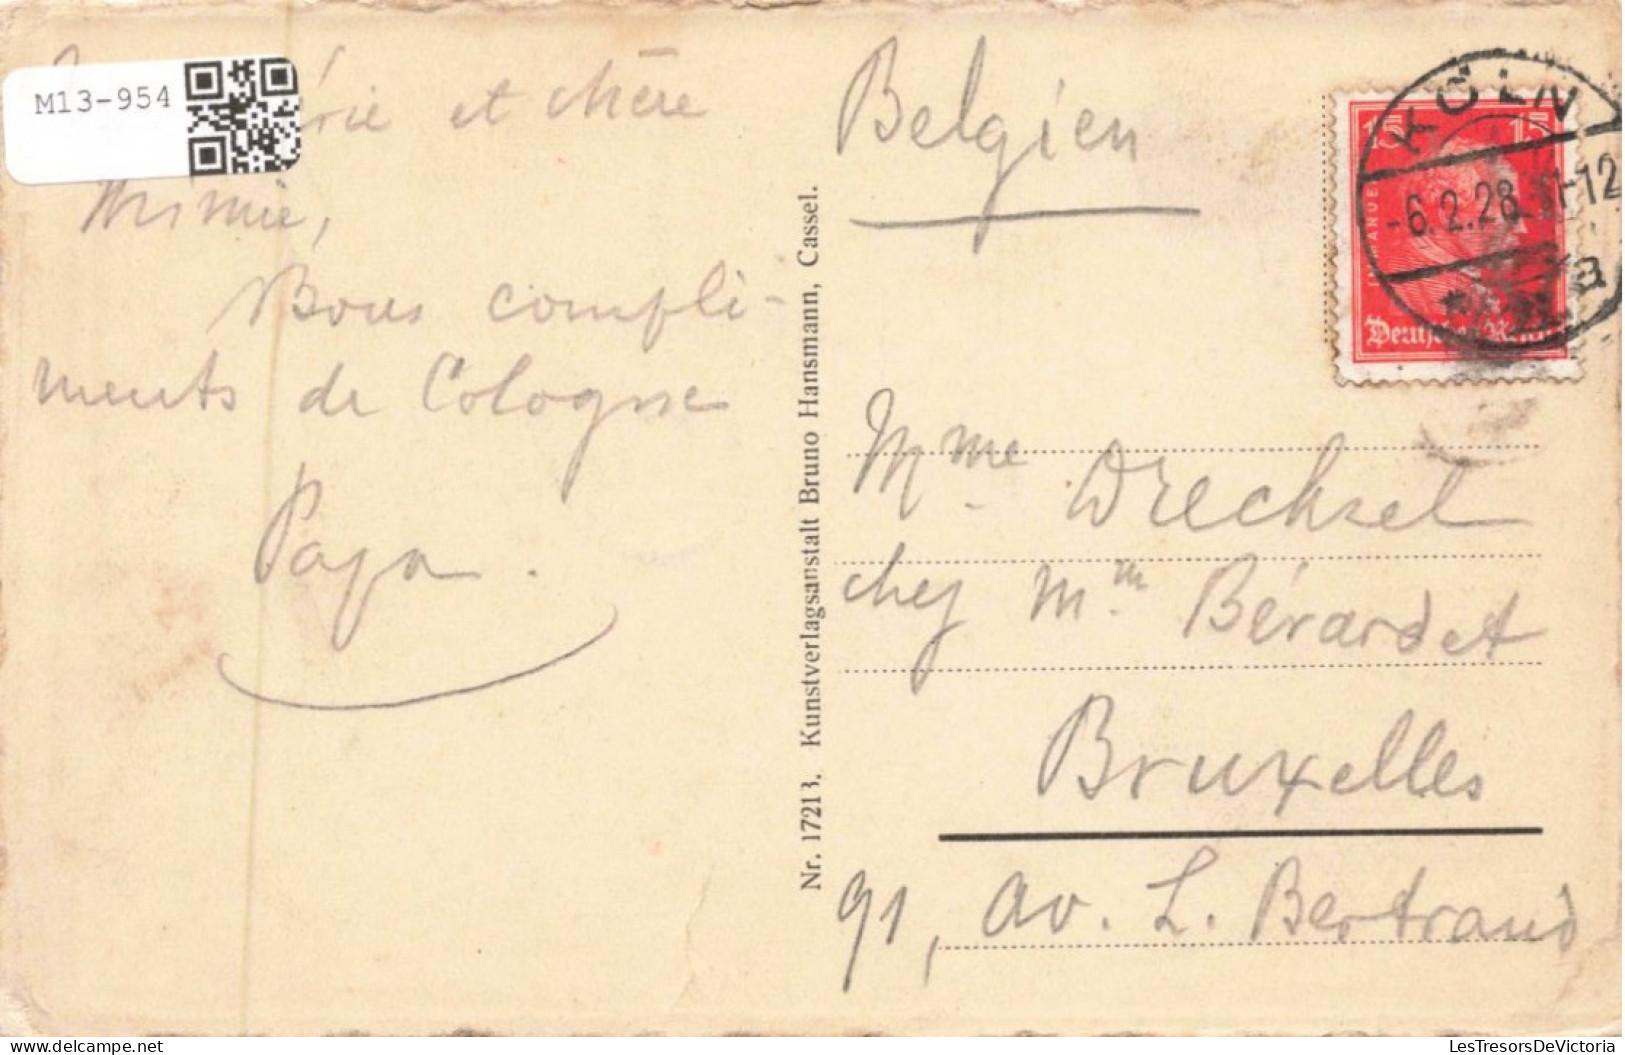 M13-954
et chère
Mimie,
Bons compli-
ments de Cologne
Papa.
Nr. 17213. Kunstverlagsanstalt Bruno Hansmann, Cassel.
Belgien
15 15
KÖLN
-6.2.28. 11-12
a
Deutsches Reich
Mme Drechsel
chez Mme Bérardet
Bruxelles
91, av. L. Bertrand
LesTresorsDeVictoria